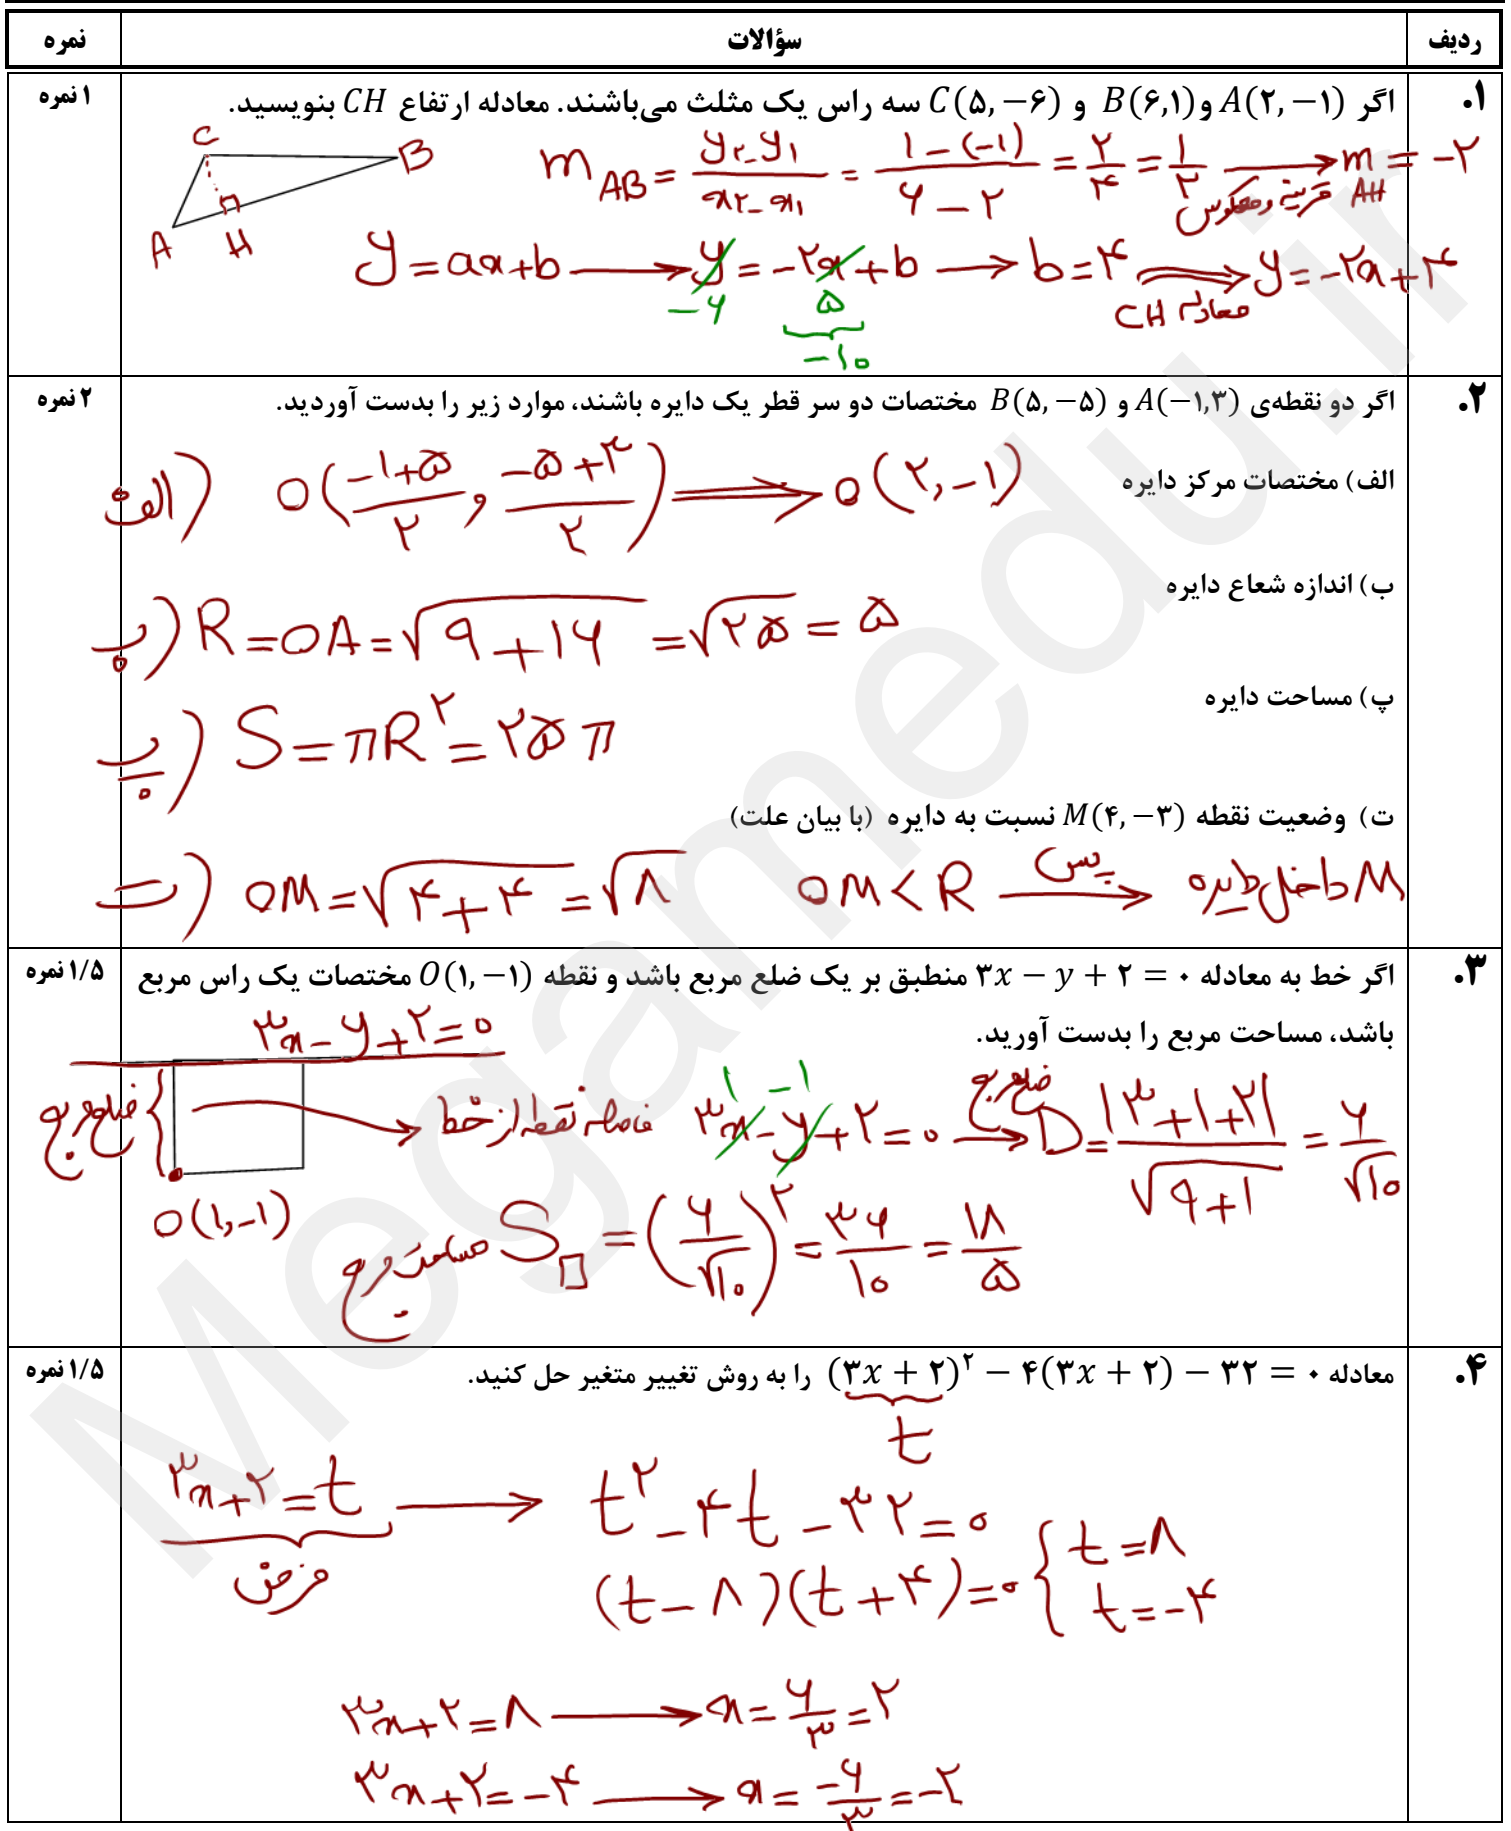 ردیف سؤالات نمره
۱. اگر A(۲, −۱) و B(۶,۱) و C(۵, −۶) سه راس یک مثلث می‌باشند. معادله ارتفاع CH بنویسید. ۱ نمره
C B A H
m AB = y۲-y۱ / x۲-x۱ = ۱-(-۱) / ۶-۲ = ۲/۴ = ۱/۲ → قرینه و معکوس m AH = -۲
y = ax+b → y = -۲x+b → b=۴ ⟹ معادله CH y=-۲x+۴
-۶ ۵
-۱۰
۲. اگر دو نقطه‌ی A(−۱,۳) و B(۵, −۵) مختصات دو سر قطر یک دایره باشند، موارد زیر را بدست آوردید. ۲ نمره
الف) مختصات مرکز دایره
الف) O(-۱+۵/۲ , -۵+۳/۲) ⟹ O(۲,-۱)
ب) اندازه شعاع دایره
ب) R=OA=√۹+۱۶ =√۲۵ = ۵
پ) مساحت دایره
پ) S=πR^۲=۲۵π
ت) وضعیت نقطه M(۴, −۳) نسبت به دایره (با بیان علت)
ت) OM=√۴+۴ =√۸ OM<R → پس M داخل دایره
۳. اگر خط به معادله ۳x − y + ۲ = ۰ منطبق بر یک ضلع مربع باشد و نقطه O(۱, −۱) مختصات یک راس مربع ۱/۵ نمره
باشد، مساحت مربع را بدست آورید.
۳x-y+۲=۰
ضلع مربع → فاصله نقطه از خط ۳x-y+۲=۰ → ضلع مربع D=|۳+۱+۲| / √۹+۱ = ۶/√۱۰
۱ -۱
O(۱,-۱)
مساحت مربع S□ = (۶/√۱۰)^۲ = ۳۶/۱۰ = ۱۸/۵
۴. معادله (۳x + ۲)^۲ − ۴(۳x + ۲) − ۳۲ = ۰ را به روش تغییر متغیر حل کنید. ۱/۵ نمره
t
۳x+۲=t → t^۲-۴t-۳۲=۰
فرض
(t-۸)(t+۴)=۰ { t=۸
t=-۴
۳x+۲=۸ → x=۶/۳=۲
۳x+۲=-۴ → x=-۶/۳=-۲
Megamedu.ir